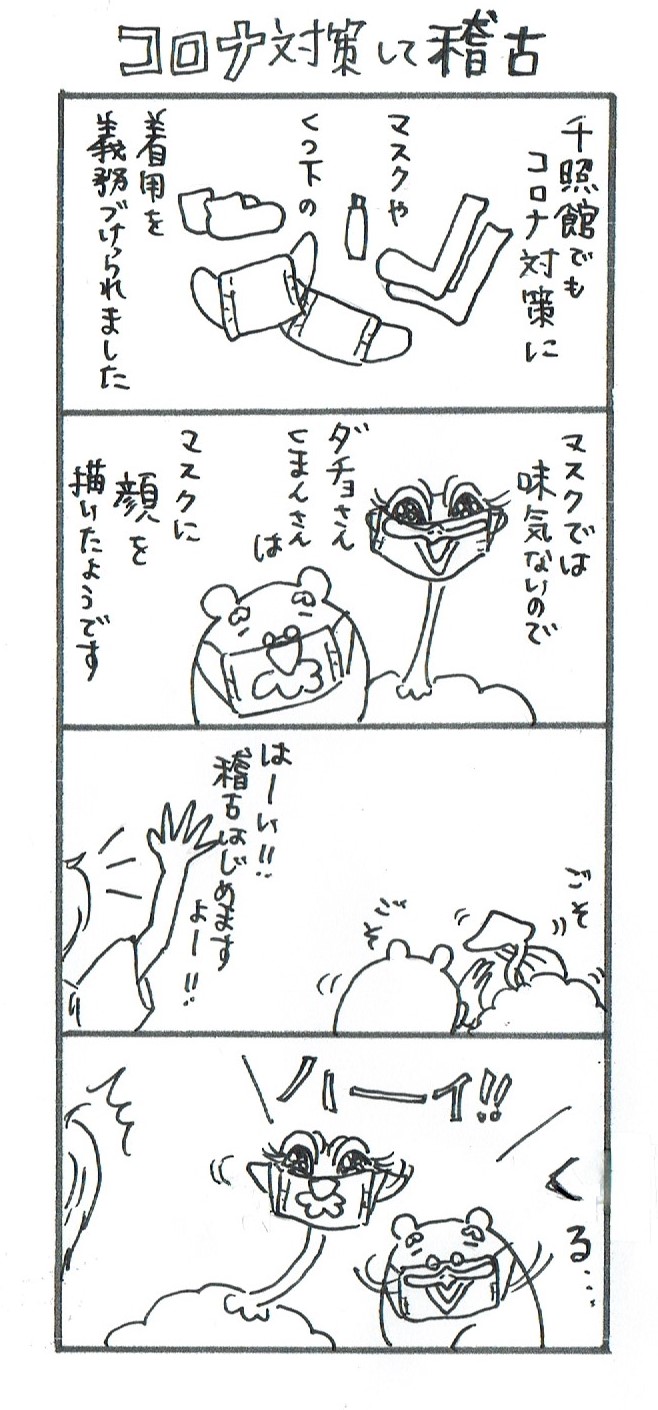 コロナ対策して稽古
千照館でも
コロナ対策に
マスクや
くつ下の
着用を
義務づけられました
マスクでは
味気ないので
ダチョさん
くまんさん
は
マスクに
顔を
描いたようです
ごそ
ごそ
はーい!!
稽古はじめます
よー!!
ハーイ!!
くる…